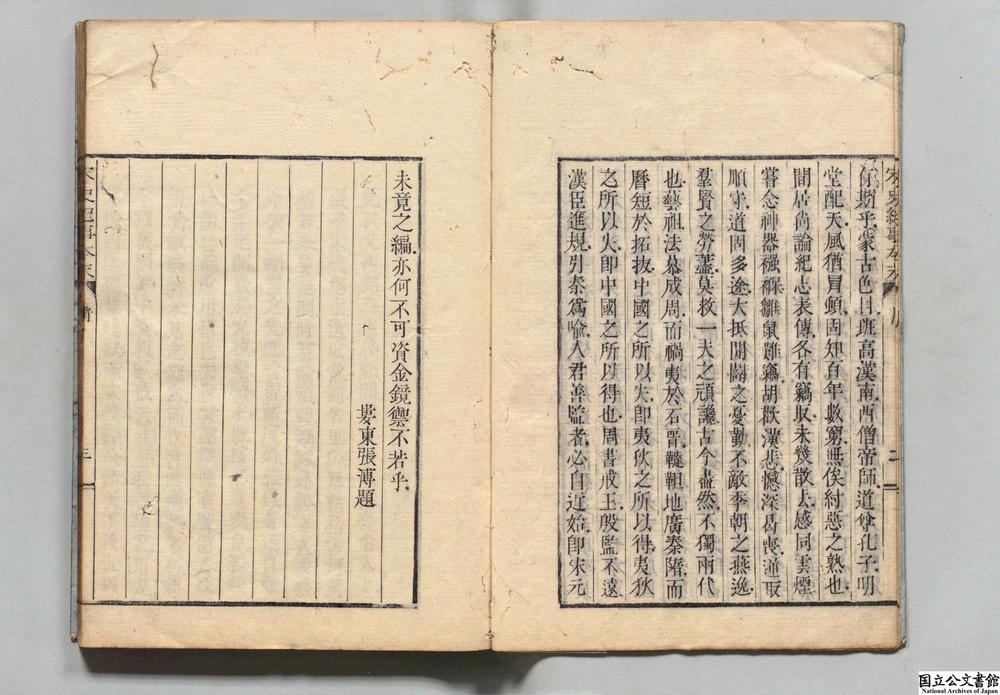 宋史紀事本末 序 二
有期乎蒙古色目班高漢南西僧帝師道尊孔子明
堂配天風猶冒頓固知百年數窮無俟紂惡之熟也
閒居尚論紀志表傳各有竊取未幾散去感同雲煙
嘗念神器雖鼠難竊胡歡漢悲憾深曷喪運取
順守道固多途大抵開闢之憂勤不敵季朝之燕逸
羣賢之勞藎莫救一夫之頑讒古今盡然不獨兩代
也藝祖法慕成周而禍夷於石晉韃靼地廣秦隋而
曆短於拓拔中國之所以失卽夷狄之所以得夷狄
之所以失卽中國之所以得也周書戒王殷監不遠
漢臣進規引秦爲喩人君善監者必自近始卽宋元
未竟之編亦何不可資金鏡禦不若乎
婁東張溥題
宋史紀事本末 三
国立公文書館
National Archives of Japan